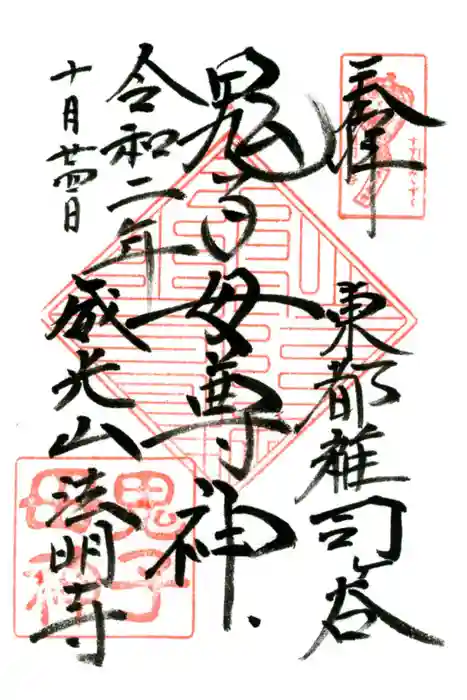 奉
東都雑司ヶ谷
鬼子母尊神
令和二年
十月廿四日
威光山法明寺
鬼子
母神